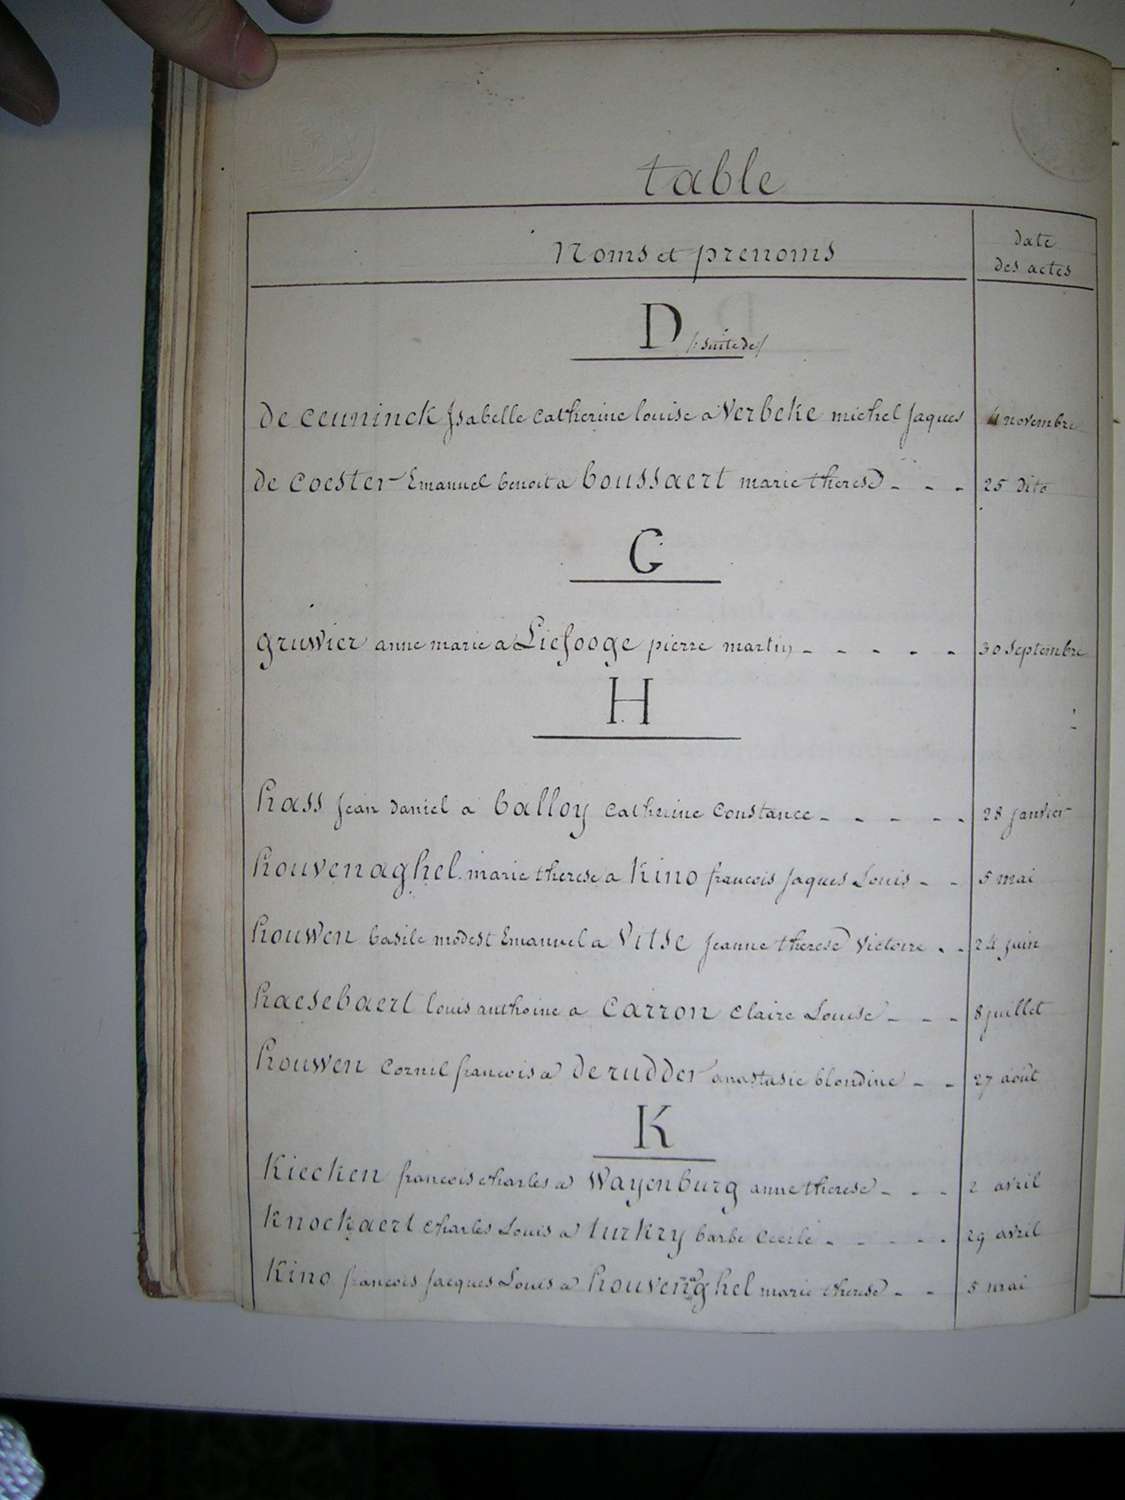 table
Noms et prenoms
date
des actes
D /: suite de/
de ceuninck Isabelle catherine louise a Verbeke michel Jaques 4 novembre
de coester Emanuel benoit a boussaert marie therese - - - 25 dito
G
gruwier anne marie a Liefooge pierre martin - - - - - 30 septembre
H
hass jean daniel a balloy catherine constance - - - - - 28 janvier
houvenaghel marie therese a Kino francois jaques Louis - - 5 mai
houwen basile modest Emanuel a Vitse jeanne therese victoire - - 24 juin
haesebaert louis anthoine a carron claire Louise - - - 8 juillet
houwen cornil francois a de rudder anastasie blondine - - 27 août
K
Kiecken francois charles a Wayenburg anne therese - - - 2 avril
Knockaert charles Louis a turkry barbe Cecile - - - - - 29 avril
Kino francois Jacques Louis a houvenaghel marie therese - - 5 mai